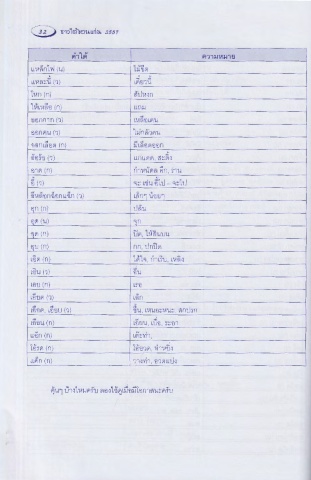 52 ชาวใต้ขอนแก่น 2557
คำใต้ ความหมาย
แหล็กไฟ (น) ไม้ขีด
แหละนี้ (ว) เดี๋ยวนี้
โหก (ก) สัปหงก
ให้เหลือ (ก) แถม
ออกกาก (ว) เหลือเดน
ออกคน (ว) ไม่กลัวคน
ออกเลือด (ก) มีเลือดออก
อ้อร้อ (ว) แก่แดด, สะดิ้ง
อาด (ก)
อี้ (ว) จะ เช่น อี้ไป - จะไป
อีหล็อกฉ็อกแฉ็ก (ว) เล็กๆ น้อยๆ
อุก (ก) ปล้น
อุด (น) จุก
อุด (ก) ปิด, ให้สินบน
อุบ (ก) กก, ปกปิด
เอิด (ก) ได้ใจ, กำเริบ, เหลิง
เอิน (ว) อื่น
เอย (ก)
เอียด (ว) เล็ก
เอือด, เอือบ (ว) ชื้น, เหนอะหนะ, สกปรก
เอือน (ก) เอียน, เบื่อ, ระอา
แอ็ก (ก) เต๊ะท่า,
โอ้รด (ก) โอ้อวด, ทำหยิ่ง
แอ็ค (ก) วางท่า, อวดเบ่ง
คุ้นๆ บ้างไหมครับ ลองใช้ดูเมื่อมีโอกาสนะครับ